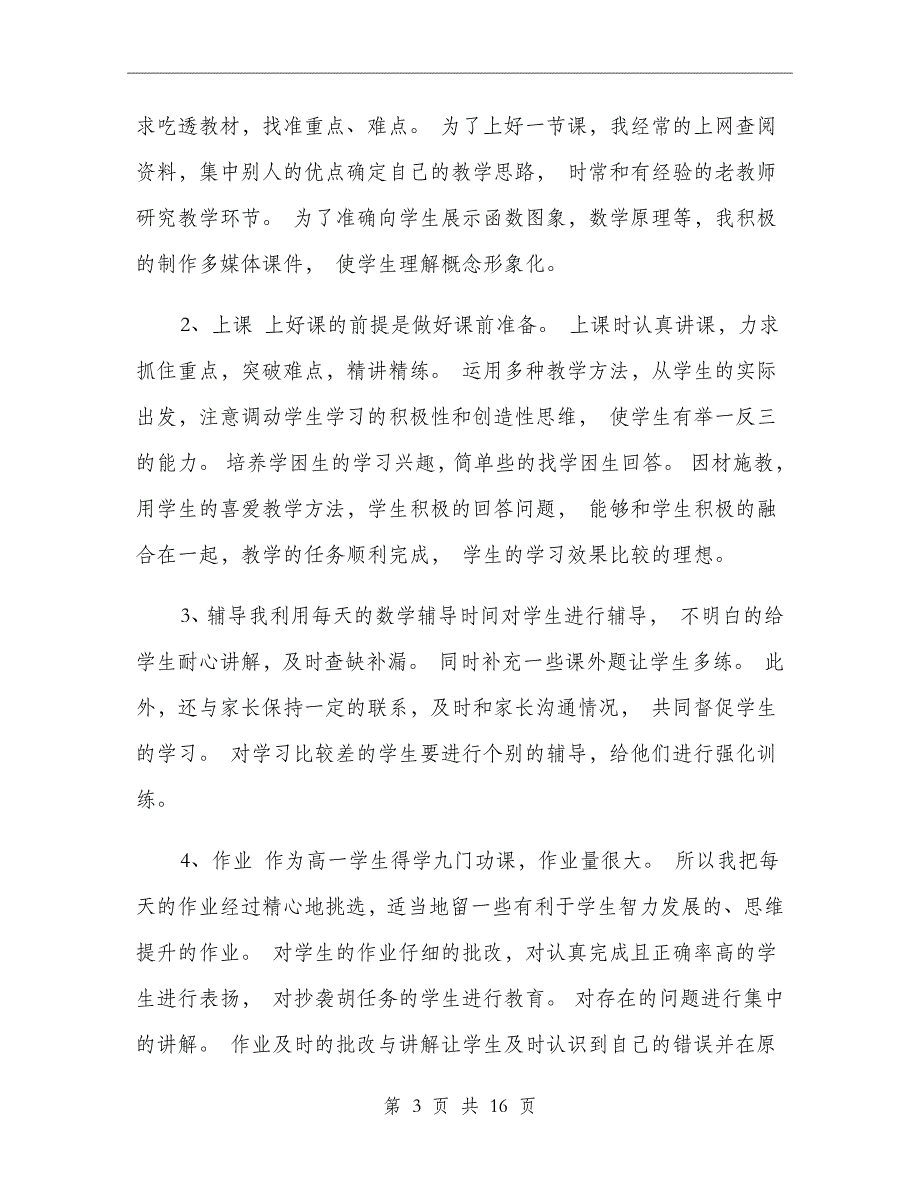 求吃透教材，找准重点、难点。 为了上好一节课，我经常的上网查阅
资料，集中别人的优点确定自己的教学思路， 时常和有经验的老教师
研究教学环节。 为了准确向学生展示函数图象，数学原理等，我积极
的制作多媒体课件， 使学生理解概念形象化。
2、上课 上好课的前提是做好课前准备。 上课时认真讲课，力求
抓住重点，突破难点，精讲精练。 运用多种教学方法，从学生的实际
出发，注意调动学生学习的积极性和创造性思维， 使学生有举一反三
的能力。 培养学困生的学习兴趣，简单些的找学困生回答。 因材施教，
用学生的喜爱教学方法，学生积极的回答问题， 能够和学生积极的融
合在一起，教学的任务顺利完成， 学生的学习效果比较的理想。
3、辅导我利用每天的数学辅导时间对学生进行辅导， 不明白的给
学生耐心讲解，及时查缺补漏。 同时补充一些课外题让学生多练。 此
外，还与家长保持一定的联系，及时和家长沟通情况， 共同督促学生
的学习。 对学习比较差的学生要进行个别的辅导，给他们进行强化训
练。
4、作业 作为高一学生得学九门功课，作业量很大。 所以我把每
天的作业经过精心地挑选，适当地留一些有利于学生智力发展的、思维
提升的作业。 对学生的作业仔细的批改，对认真完成且正确率高的学
生进行表扬， 对抄袭胡任务的学生进行教育。 对存在的问题进行集中
的讲解。 作业及时的批改与讲解让学生及时认识到自己的错误并在原
第 3 页 共 16 页